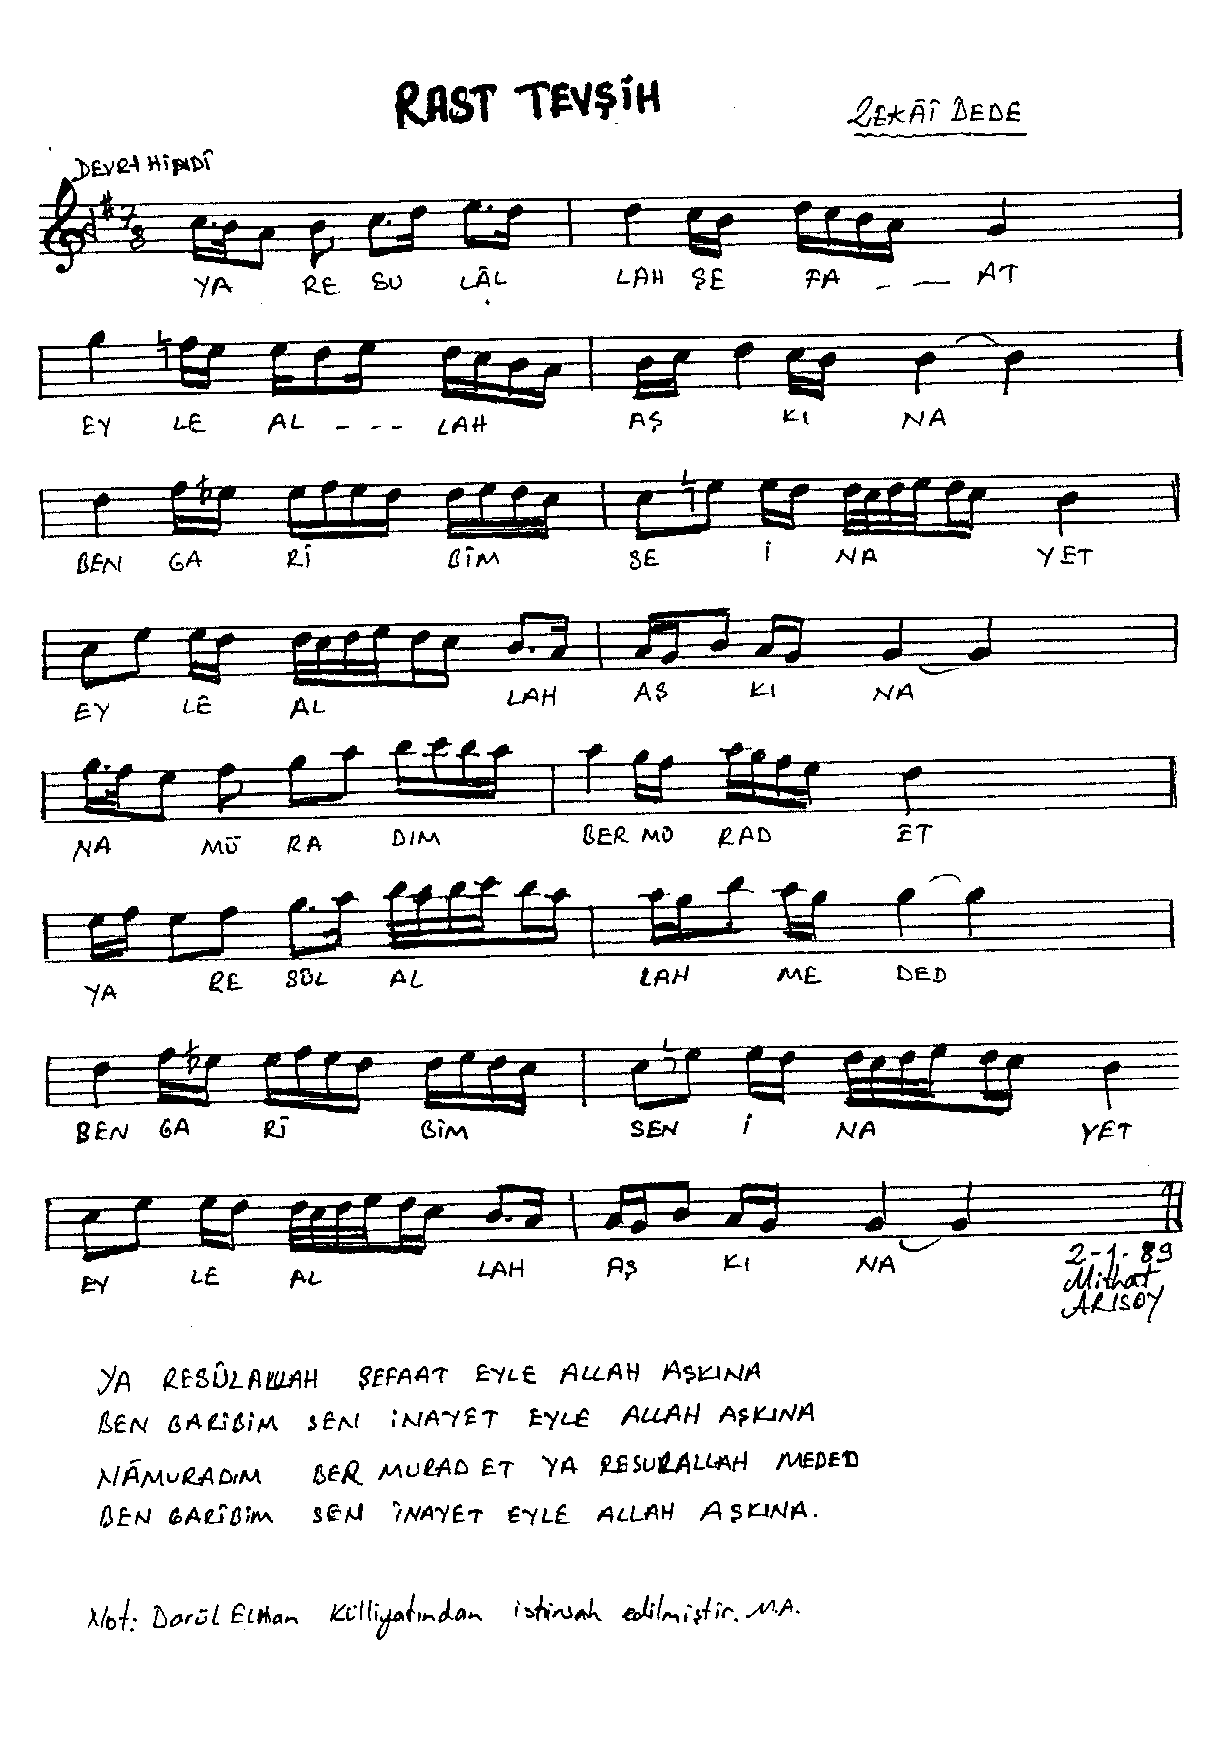 RAST TEVŞİH
ZEKÂÎ DEDE
DEVRİ HİNDÎ
7
8
YA RE SU LÂL LAH ŞE FA _ __ AT
EY LE AL _ _ _ LAH AŞ KI NA
BEN GA RÎ BÎM SE İ NA YET
EY LE AL LAH AŞ KI NA
NA MÜ RA DIM BER MU RAD ET
YA RE SÜL AL LAH ME DED
BEN GA RÎ BİM SEN İ NA YET
EY LE AL LAH AŞ KI NA
2-1-89
Mithat
ARISOY
YA RESÛLALLAH ŞEFAAT EYLE ALLAH AŞKINA
BEN GARİBİM SEN İNAYET EYLE ALLAH AŞKINA
NÂMURADIM BER MURAD ET YA RESURALLAH MEDED
BEN GARÎBİM SEN İNAYET EYLE ALLAH AŞKINA.
Not: Darül Elhan Külliyatından istinsah edilmiştir. M.A.